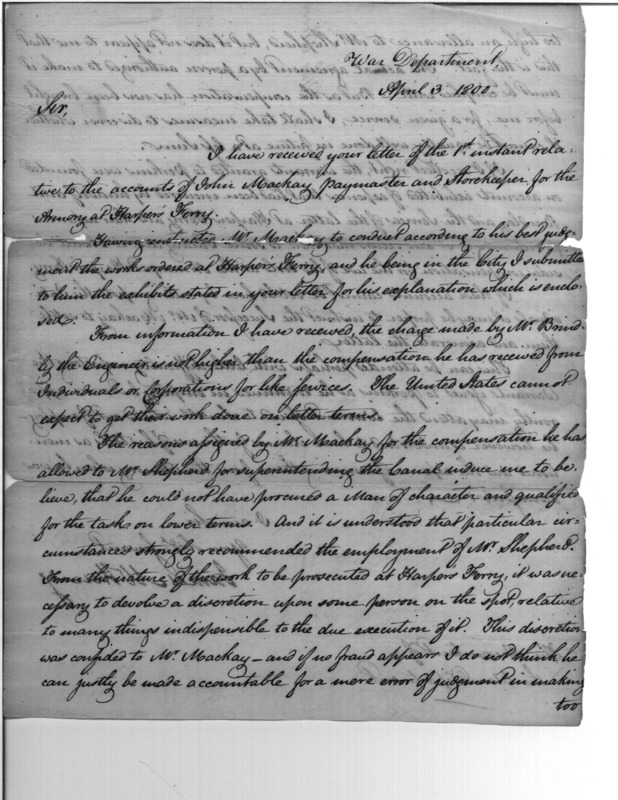 War Department
April 3. 1800.
Sir,
I have received your letter of the 1st instant rela-
tive to the accounts of John Mackay paymaster and Storekeeper for the
Armory at Harpers Ferry.
Having instructed Mr. Mackay to conduct according to his best judg-
ment the works ordered at Harper's Ferry, and he being in the City I submitted
to him the exhibits stated in your letter for his explanation which is enclo-
sed.
From information I have received, the charge made by Mr. Brind-
ly the Engineer is not higher than the compensation he has received from
Individuals or Corporations for like services. The United States cannot
expect to get their work done on better terms.
The reasons assigned by Mr. Mackay for the compensation he has
allowed to Mr. Shepherd for superintending the Canal induce me to be-
lieve, that he could not have procured a Man of character and qualified
for the task on lower terms. And it is understood that particular cir-
cumstances strongly recommended the employment of Mr. Shepherd.
From the nature of the work to be prosecuted at Harpers Ferry, it was ne-
cessary to devolve a discretion upon some person on the spot, relative
to many things indispensible to the due execution of it. This discretion
was confided to Mr. Mackay – and if no fraud appears I do not think he
can justly be made accountable for a mere error of judgement in making
too